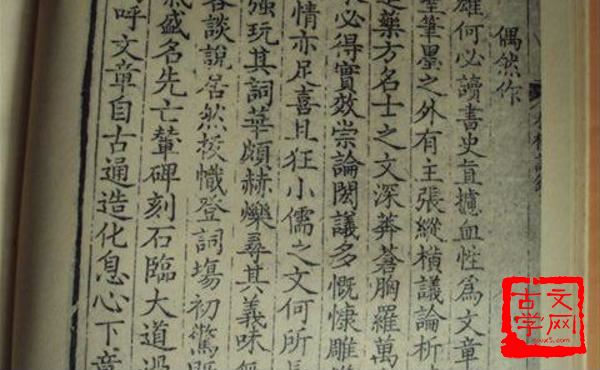 偶然作
雄何必讀書史直攄血性爲文章
筆墨之外有主張縱橫議論析
藥方名士之文深莽蒼胸羅萬
必得實效崇論閎議多慨慷雕
情亦足喜且狂小儒之文何所長
強玩其詞華頗赫爍尋其義味
談說居然拔幟登詞塲初驚既
氣盛名先亡輦碑刻石臨大道過
呼文章自古通造化息心下意
古文
学网